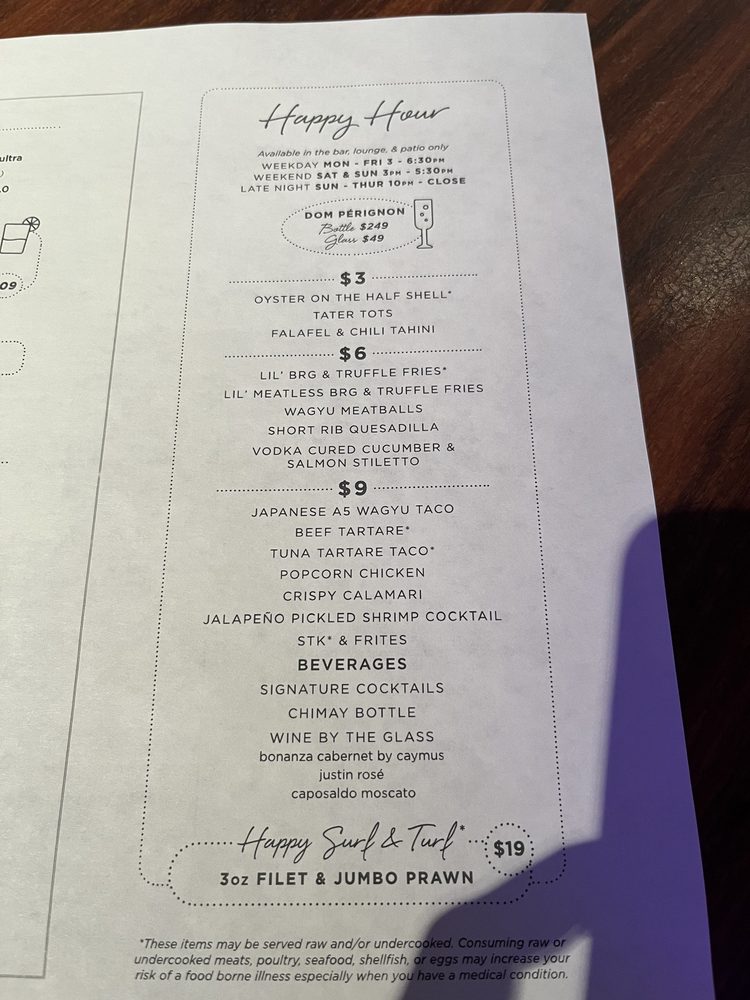 ultra
)
.0
09
Happy Hour
Available in the bar, lounge, & patio only
WEEKDAY MON - FRI 3 - 6:30PM
WEEKEND SAT & SUN 3PM - 5:30PM
LATE NIGHT SUN - THUR 10PM - CLOSE
DOM PÉRIGNON
Bottle $249
Glass $49
$3
OYSTER ON THE HALF SHELL*
TATER TOTS
FALAFEL & CHILI TAHINI
$6
LIL' BRG & TRUFFLE FRIES*
LIL' MEATLESS BRG & TRUFFLE FRIES
WAGYU MEATBALLS
SHORT RIB QUESADILLA
VODKA CURED CUCUMBER &
SALMON STILETTO
$9
JAPANESE A5 WAGYU TACO
BEEF TARTARE*
TUNA TARTARE TACO*
POPCORN CHICKEN
CRISPY CALAMARI
JALAPEÑO PICKLED SHRIMP COCKTAIL
STK* & FRITES
BEVERAGES
SIGNATURE COCKTAILS
CHIMAY BOTTLE
WINE BY THE GLASS
bonanza cabernet by caymus
justin rosé
caposaldo moscato
Happy Surf & Turf* $19
3oz FILET & JUMBO PRAWN
*These items may be served raw and/or undercooked. Consuming raw or
undercooked meats, poultry, seafood, shellfish, or eggs may increase your
risk of a food borne illness especially when you have a medical condition.